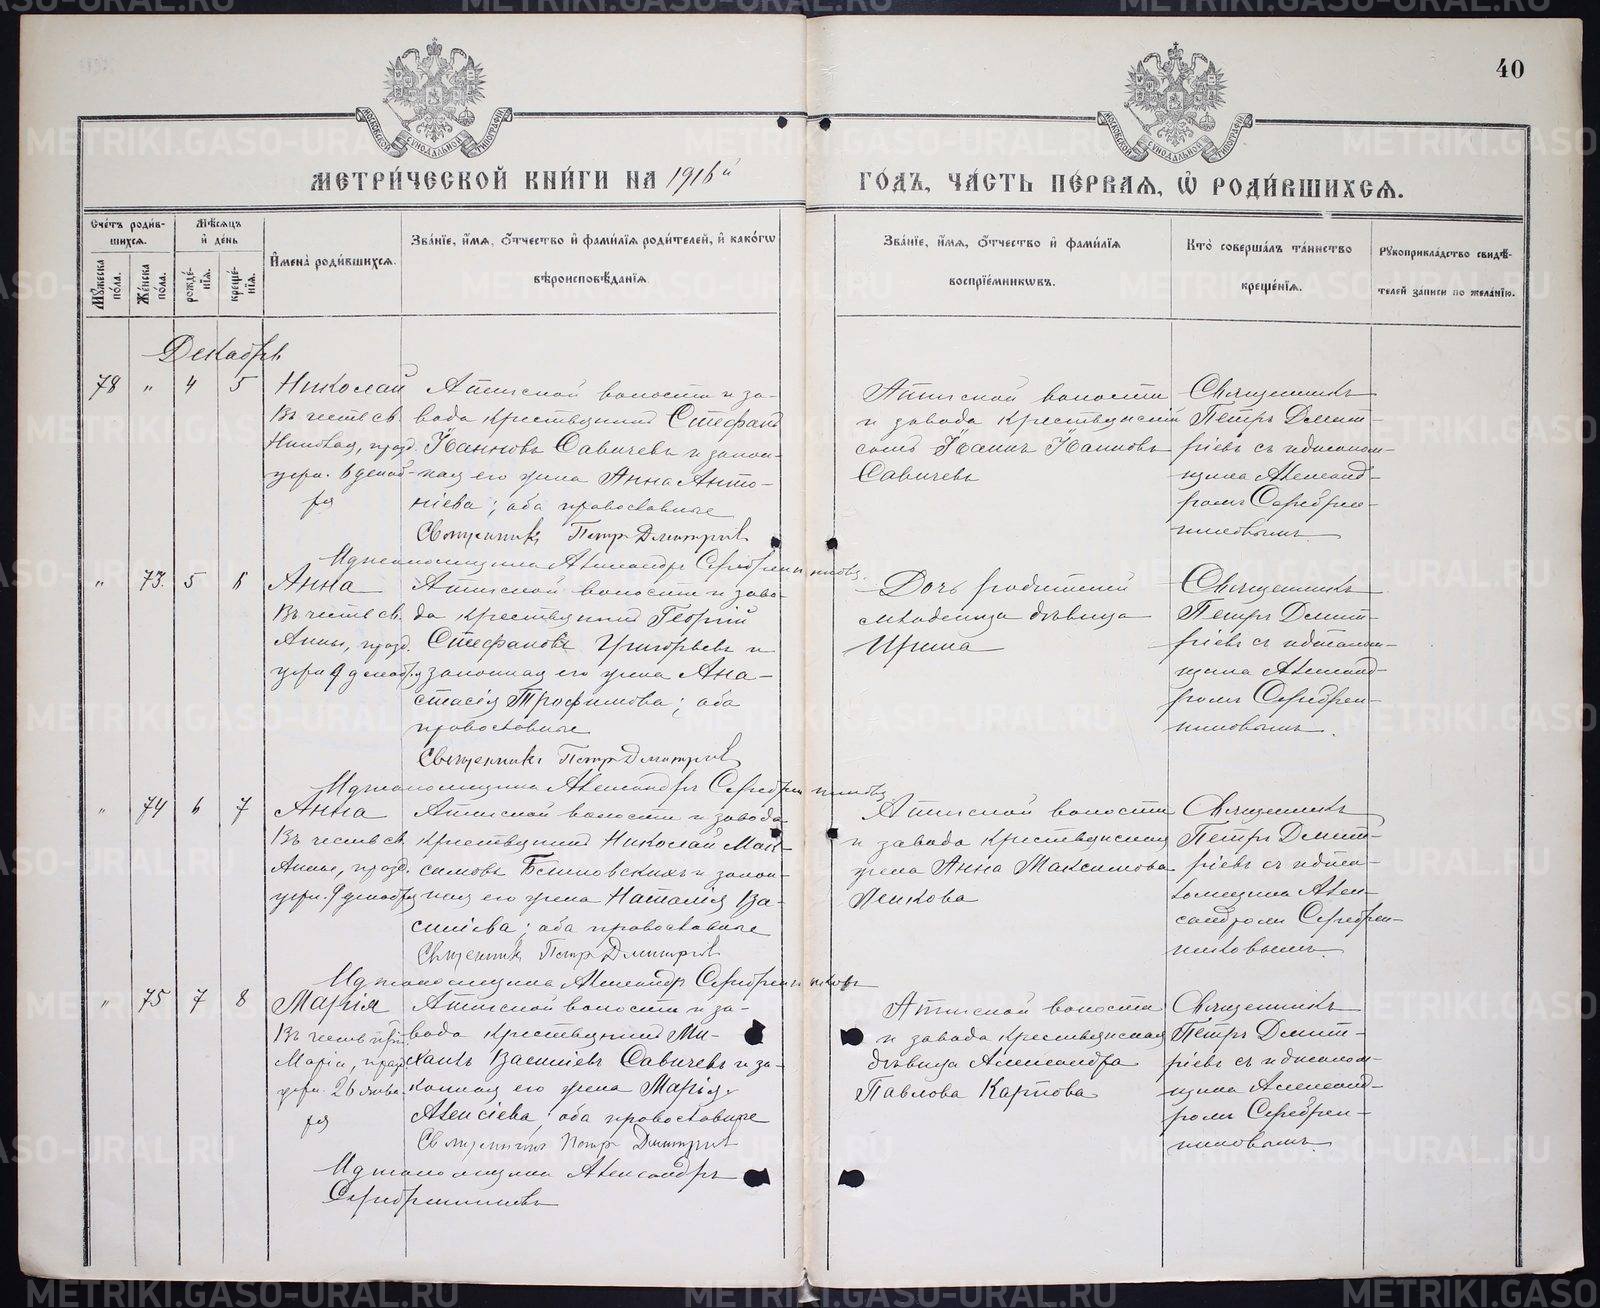 40
МОСКОВСКОЙ СѴНОДАЛЬНОЙ ТИПОГРАФІИ
МОСКОВСКОЙ СѴНОДАЛЬНОЙ ТИПОГРАФІИ
МЕТРИ́ЧЕСКОЙ КНИ́ГИ НА 1916й
ГО́ДЪ, ЧА́СТЬ ПЕ́РВАЯ, Ѽ РОДИ́ВШИХСЯ.
Сче́тъ роди́вшихся.
Мꙋжеска по́ла.
Же́нска по́ла.
Мѣ́сяцъ и де́нь
рожде́нїя.
креще́нїя.
Имена̀ роди́вшихся.
Зва́нїе, и́мя, ѻ́тчество и фами́лїя роди́телей, и како́гѡ
вѣроисповѣ́данїя
Зва́нїе, и́мя, ѻ́тчество и фами́лїя
воспрїе́мникѡвъ.
Кто̀ соверша́лъ та́инство
креще́нїя.
Рꙋкоприкла́дство свидѣ́-
телей за́писи по жела́нїю.
Декабрь
78 " 4 5 Николай
Въ честь св.
Николая, празд.
церк. 6 декаб-
ря
Атигской волости и за-
вода крестьянинъ Стефанъ
Іоанновъ Савичевъ и закон-
ная его жена Анна Анто-
ніева; оба православные
Священникъ Петръ Димитріевъ
Псаломщикъ Александръ Серебренниковъ.
Атигской волости
и завода крестьянскій
сынъ Іоаннъ Іоанновъ
Савичевъ
Священникъ
Петръ Димит-
ріевъ съ псалом-
щикомъ Александ-
ромъ Серебрен-
никовымъ.
" 73. 5 6 Анна
Въ честь св.
Анны, празд.
церк. 9 декабря
Атигской волости и заво-
да крестьянинъ Георгій
Стефановъ Григорьевъ и
законная его жена Ана-
стасія Трофимова; оба
православные
Священникъ Петръ Димитріевъ
Псаломщикъ Александръ Серебренниковъ
Дочь родителей
дѣвица
Ирина
Священникъ
Петръ Димит-
ріевъ съ псалом-
щикомъ Александ-
ромъ Серебрен-
никовымъ.
" 74 6 7 Анна
Въ честь св.
Анны, празд.
церк. 9 декабря
Атигской волости и завода
крестьянинъ Николай Мак-
симовъ и закон-
ная его жена Наталія Ва-
силіева; оба православные
Священникъ Петръ Димитріевъ
Псаломщикъ Александръ Серебренниковъ
Атигской волости
и завода крестьянская
жена Анна Максимова
Пенкова
Священникъ
Петръ Димит-
ріевъ съ псал-
омщикомъ Алек-
сандромъ Серебрен-
никовымъ.
" 75 7 8 Марія
Въ честь прп.
Маріи, празд.
церк. 26 янва-
ря
Атигской волости и за-
вода крестьянинъ Ми-
хаилъ Василіевъ Савичевъ и за-
конная его жена Марія
Алексіева; оба православные
Священникъ Петръ Димитріевъ
Псаломщикъ Александръ
Серебренниковъ
Атигской волости
и завода крестьянская
дѣвица Александра
Павлова Карпова
Священникъ
Петръ Димит-
ріевъ съ псалом-
щикомъ Александ-
ромъ Серебрен-
никовымъ.
METRIKI.GASO-URAL.RU